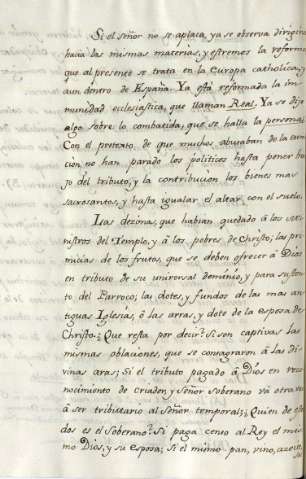 Si el señor no se aplaca, ya se observa dirigirse
hacia las mismas materias, y estremos la reforma
que al presente se trata en la Europa catholica, y
aun dentro de España. Ya está reformada la im-
munidad ecclesiastica, que llaman Real. Ya se dijo
algo sobre lo combatida, que se halla la personal.
Con el pretexto de que muchos abusaban de la exem-
cion no han parado los politicos hasta poner ba-
jo del tributo, y la contribucion los bienes mas
sacrosantos, y hasta igualar el altar con el suelo.
Las dezimas, que habian quedado á los Mi-
nistros del Templo, y á los pobres de Christo; las pri-
micias de los frutos, que se deben ofrecer á Dios
en tributo de su universal dominio, y para susten-
to del Parroco; las dotes, y fundos de las mas an-
tiguas Iglesias, ó las arras, y dote de la esposa de
Christo. ¿Que resta por decir? Si son captivas las
mismas oblaciones, que se consagraron á las di-
vinas aras; Si el tributo pagado á Dios en reco-
nocimiento de Criador, y Señor Soberano vá otra vez
á ser tributario al Señor temporal; ¿Quien de estos
dos es el Soberano? Si paga censo al Rey el mis-
mo Dios, y su esposa; Si el mismo pan, vino, azeite